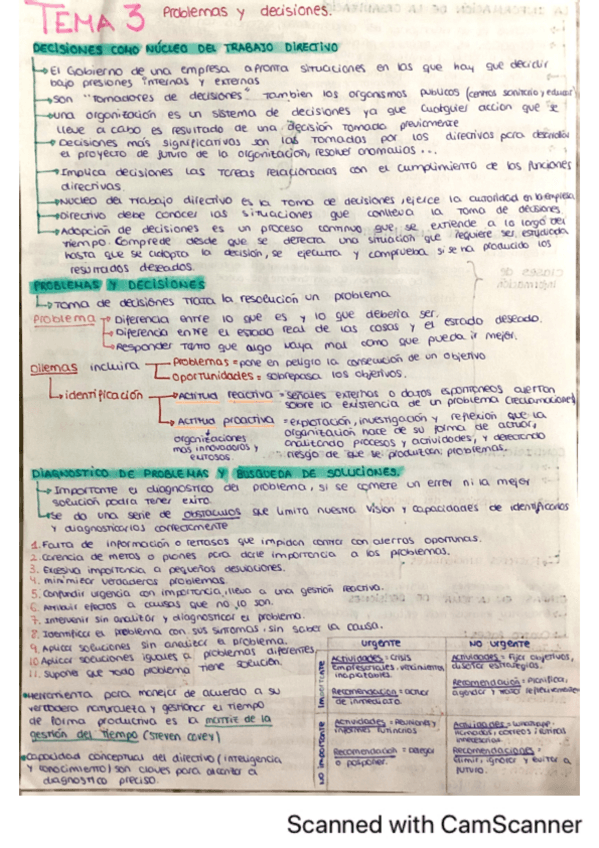 TEMA 3 Problemas y decisiones.
DECISIONES COMO NÚCLEO DEL TRABAJO DIRECTIVO
El Gobierno de una empresa afronta situaciones en las que hay que decidir
bajo presiones internas y externas
son "tomadores de decisiones" también los organismos públicos (centros sanitario y
una organización es un sistema de decisiones ya que cualquier acción que se
lleve a cabo es resultado de una decisión tomada previamente
Decisiones más significativas son las tomadas por los directivos para desarrollar
el proyecto de futuro de la organización, resolver anomalías ...
Implica decisiones las tareas relacionadas con el cumplimiento de las funciones
directivas.
Núcleo del trabajo directivo es la toma de decisiones, ejerce la autoridad en la empresa
Directivo debe conocer las situaciones que conlleva la toma de decisiones
Adopción de decisiones es un proceso continuo que se extiende a lo largo del
tiempo. Comprede desde que se detecta una situación que requiere ser estudiada
hasta que se adopta la decisión, se ejecuta y comprueba si se ha producido los
resultados deseados.
PROBLEMAS Y DECISIONES
Toma de decisiones trata la resolución un problema
Problema Diferencia entre lo que es y lo que debería ser.
Diferencia entre el estado real de las cosas y el estado deseado.
Responder tanto que algo vaya mal como que pueda ir mejor.
Dilemas incluirá Problemas = pone en peligro la consecución de un objetivo
Oportunidades = sobrepasa los objetivos.
identificación Actitud reactiva = señales externas o datos espontáneos alertan
sobre la existencia de un problema (reclamaciones)
Actitud proactiva = explotación, investigación y reflexión que la
organizaciones más innovadoras y exitosas.
organización hace de su forma de actuar,
analizando procesos y actividades, y detectando
riesgo de que se produzcan problemas.
DIAGNOSTICO DE PROBLEMAS Y BUSQUEDA DE SOLUCIONES.
Importante el diagnostico del problema, si se comete un error ni la mejor
solución podría tener éxito.
Se da una serie de obstáculos que limita nuestra visión y capacidades de identificarlos
y diagnosticarlos correctamente
1. Falta de información o retrasos que impiden contar con alertas oportunas.
2. Carencia de metas o planes para darle importancia a los problemas.
3. Exesiva importancia a pequeños desviaciones.
4. minimizar verdaderos problemas.
5. Confundir urgencia con importancia, lleva a una gestión reactiva.
6. Atribuir efectos a causas que no lo son.
7. Intervenir sin analizar y diagnosticar el problema.
8. Identificar el problema con sus síntomas, sin saber la causa.
9. Aplicar soluciones sin analizar el problema.
10. Aplicar soluciones iguales a problemas diferentes,
11. Suponer que todo problema tiene solución.
Herramienta para manejar de acuerdo a su
verdadera naturaleza y gestionar el tiempo
de forma productiva es la matriz de la
gestión del tiempo (Steven Covey)
Capacidad conceptual del directivo (inteligencia
y conocimiento) son claves para alcanzar a
diagnostico preciso.
urgente
NO urgente
Importante
Actividades = crisis
empresariales, vencimientos
inaplazables.
Recomendación = actuar
de inmediato.
Actividades = fijar objetivos,
diseñar estrategias.
Recomendación = planificar,
agendar y
NO importante
Actividades = Reuniones,
informes rutinarios
Recomendación = delegar
o posponer.
Actividades = whatsapp,
llamadas, correos
innecesarios.
Recomendaciones =
elimin, ignorar y evitar a
futuro.
Scanned with CamScanner